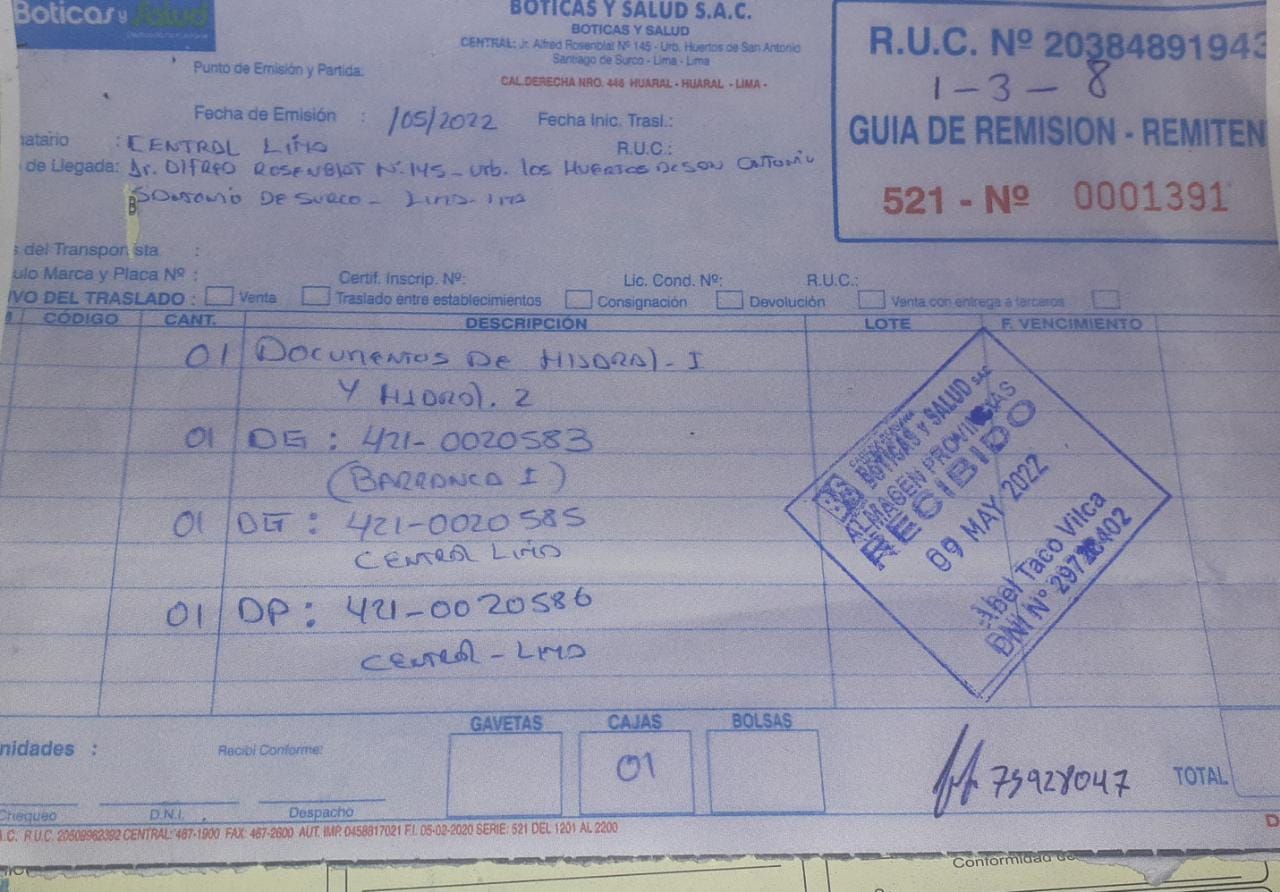 Boticas y Salud
BOTICAS Y SALUD S.A.C.
BOTICAS Y SALUD
CENTRAL: Jr. Alfred Rosenblat Nº 145 - Urb. Huertos de San Antonio
Santiago de Surco - Lima - Lima
CAL.DERECHA NRO. 446 HUARAL - HUARAL - LIMA -
R.U.C. Nº 20384891943
1-3-8
GUIA DE REMISION - REMITEN
521 - Nº 0001391
Punto de Emisión y Partida:
Fecha de Emisión : /05/2022 Fecha Inic. Trasl.:
natario : CENTRAL LIMA R.U.C.:
de Llegada: Jr. ALFRED ROSENBLAT Nº 145 - Urb. los HUERTOS DE SAN
DE SURCO - LIMA-LIMA
s del Transponista :
ulo Marca y Placa Nº : Certif. Inscrip. Nº: Lic. Cond. Nº: R.U.C.:
IVO DEL TRASLADO : Venta Traslado entre establecimientos Consignación Devolución Venta con entrega a terceros
CÓDIGO CANT. DESCRIPCIÓN LOTE F. VENCIMIENTO
01 DOCUMENTOS DE HUARAL-I
Y HUARAL. 2
01 DG : 421-0020583
(BARRANCA I)
01 DG : 421-0020585
CENTRAL LIMA
01 DP : 421-0020586
CENTRAL - LIMA
BOTICAS Y SALUD SAC
ALMAGEN PROVINCIAS
RECIBIDO
09 MAY 2022
Abel Taco Vilca
DNI Nº
GAVETAS CAJAS BOLSAS
nidades : Recibi Conforme:
01
75928047 TOTAL
Chequeo D.N.I. Despacho
A.C. R.U.C. 20509962392 CENTRAL: 467-1900 FAX: 467-2600 AUT. IMP. 0458817021 F.I. 05-02-2020 SERIE: 521 DEL 1201 AL 2200
Conformidad de